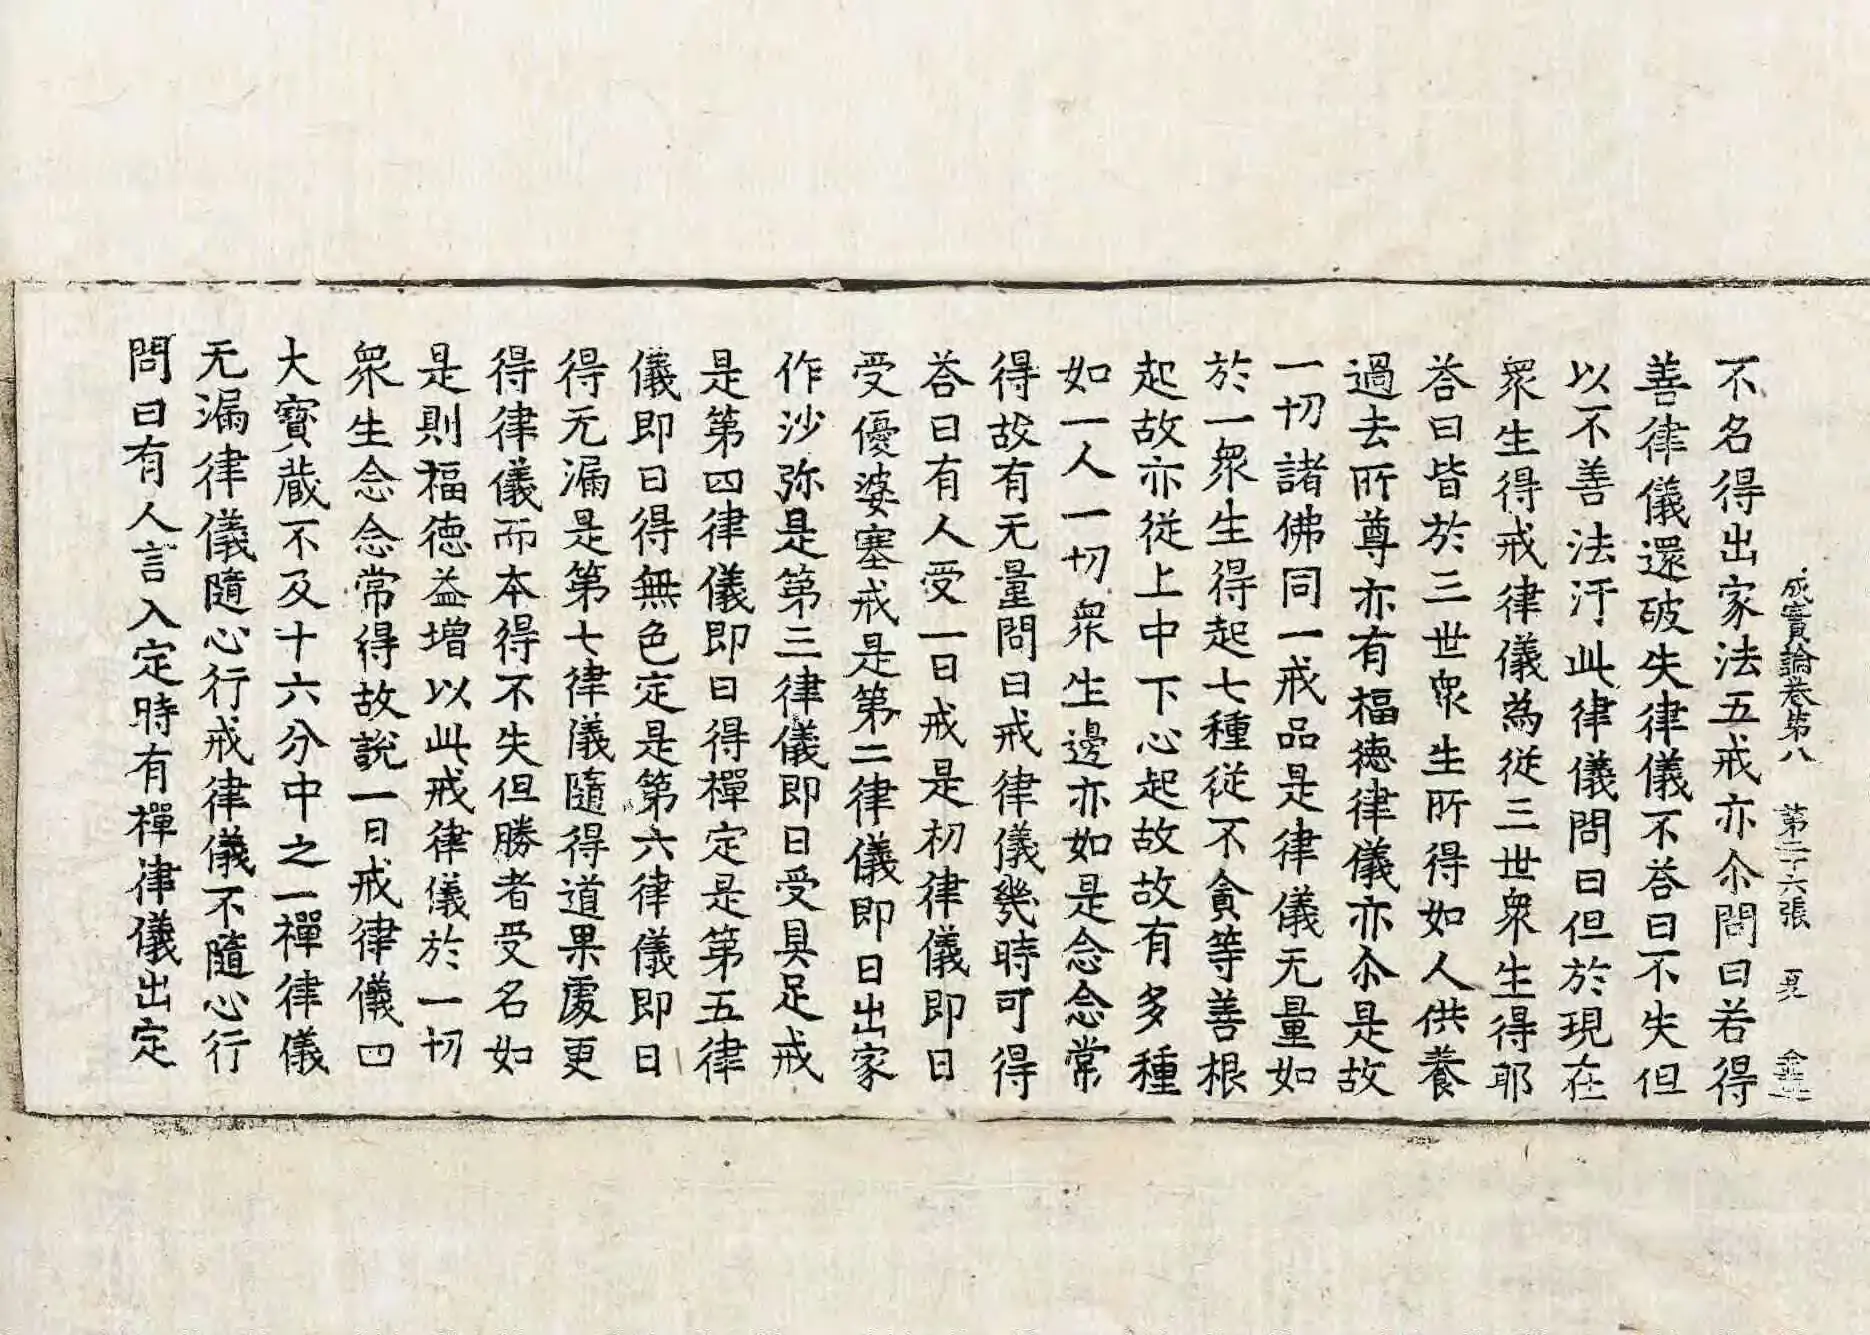 成實論卷第八 第二十六張 晃
不名得出家法五戒亦尒問曰若得
善律儀還破失律儀不荅曰不失但
以不善法汙此律儀問曰但於現在
衆生得戒律儀為從三世衆生得耶
荅曰皆於三世衆生所得如人供養
過去所尊亦有福德律儀亦尒是故
一切諸佛同一戒品是律儀无量如
於一衆生得起七種從不貪等善根
起故亦從上中下心起故故有多種
如一人一切衆生邊亦如是念念常
得故有无量問曰戒律儀幾時可得
荅曰有人受一日戒是初律儀即日
受優婆塞戒是第二律儀即日出家
作沙弥是第三律儀即日受具足戒
是第四律儀即日得禪定是第五律
儀即日得無色定是第六律儀即日
得无漏是第七律儀隨得道果處更
得律儀而本得不失但勝者受名如
是則福德益增以此戒律儀於一切
衆生念念常得故說一日戒律儀四
大寶藏不及十六分中之一禪律儀
无漏律儀隨心行戒律儀不隨心行
問曰有人言入定時有禪律儀出定